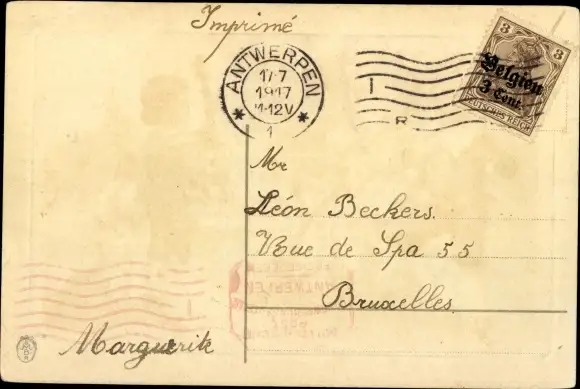 Imprimé
ANTWERPEN
17-7
1917
11-12V
* *
1
R
3 3
Belgien
3 Cent.
DEUTSCHES REICH
Mr
Léon Beckers.
Rue de Spa 55
Bruxelles.
ANTWERPEN
Marguerite